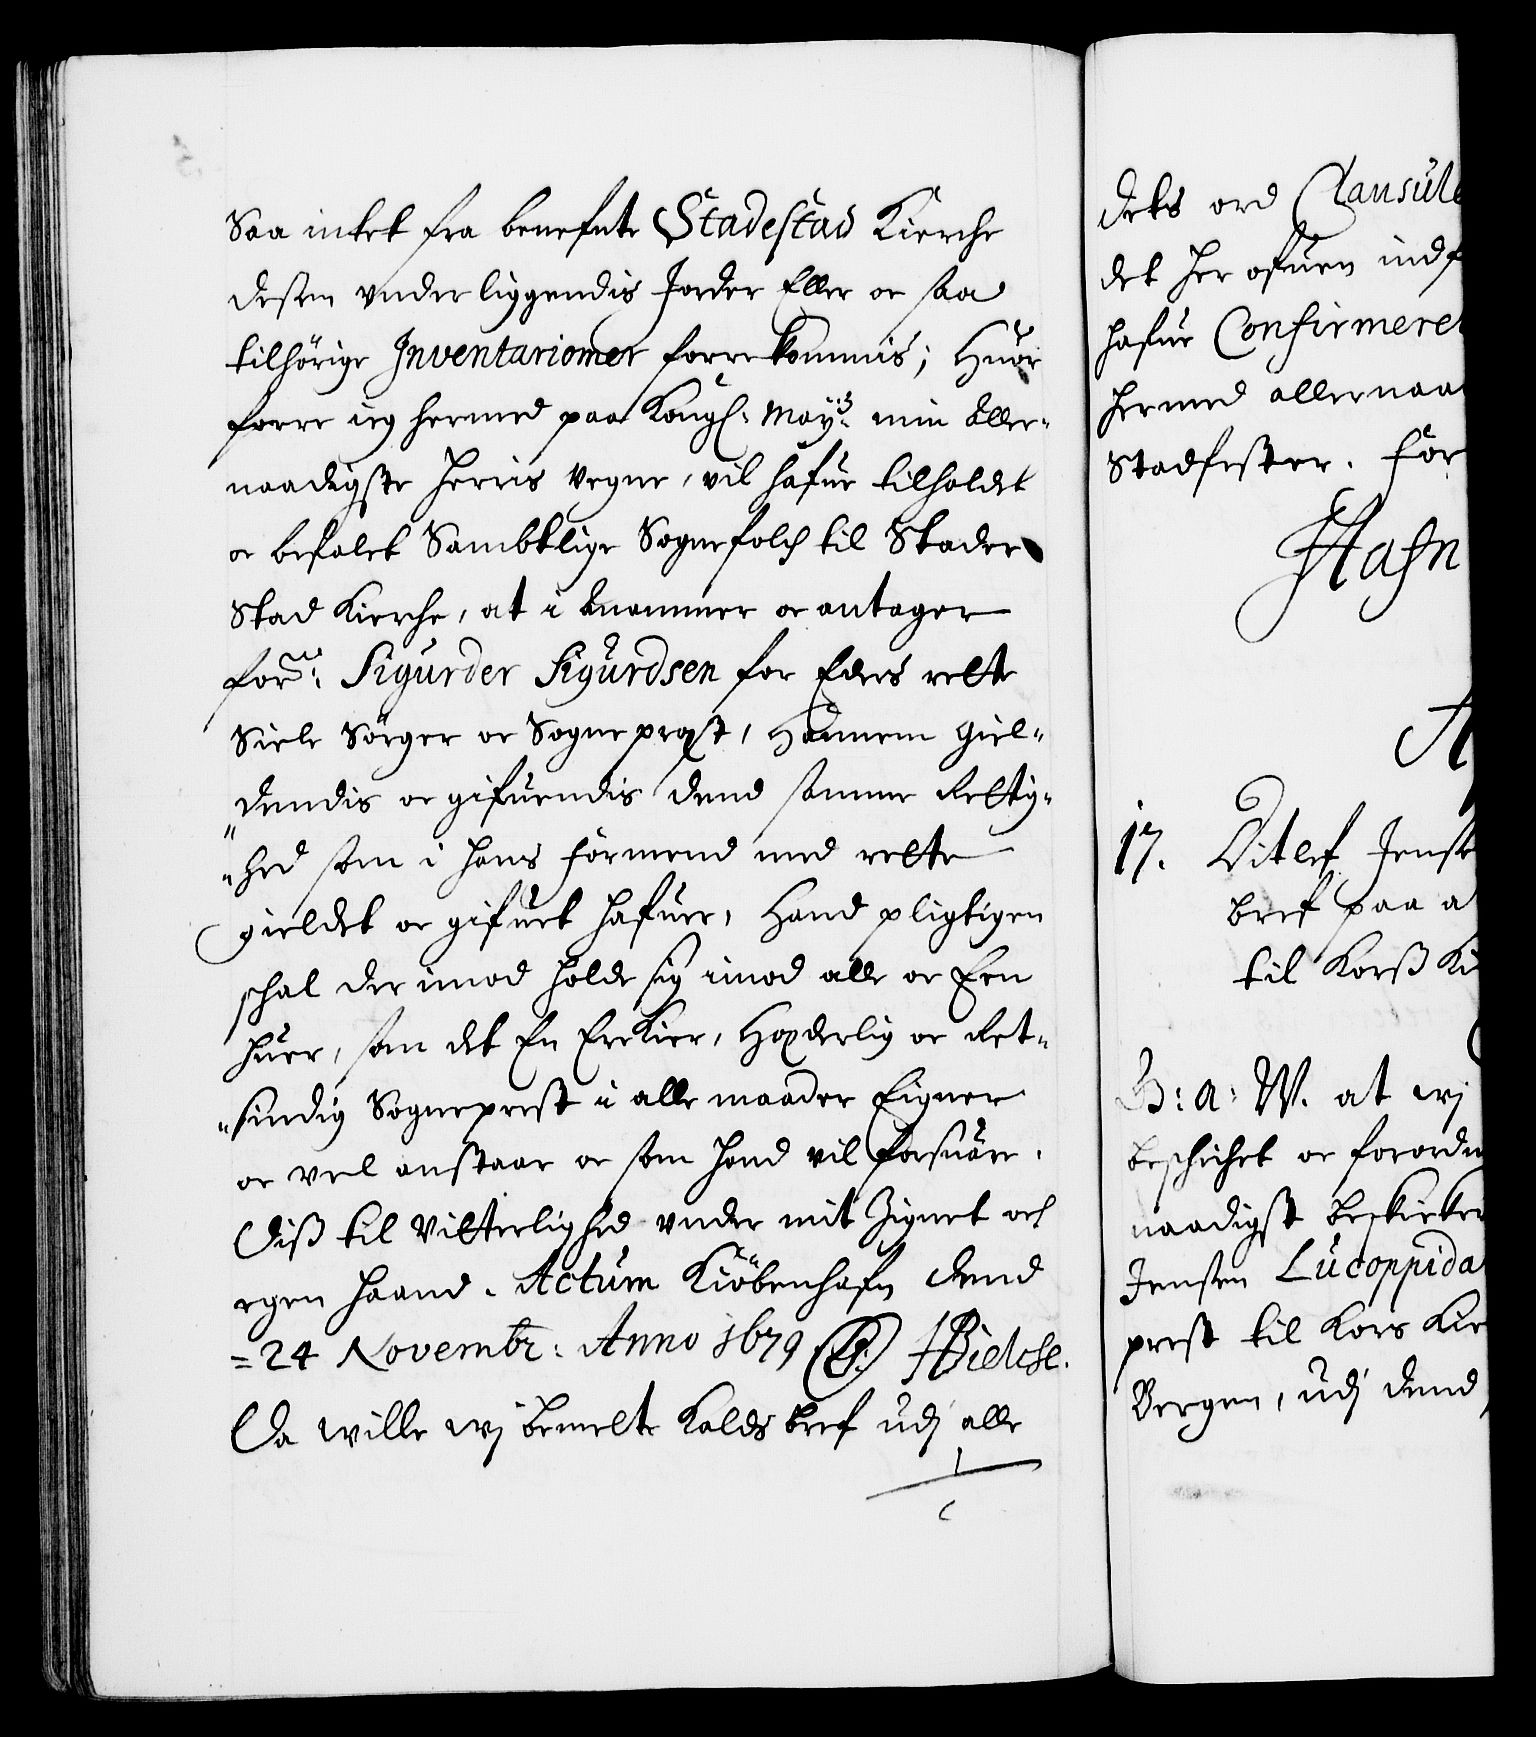 Saa intet fra benefnte Stadestad Kierche
desen underliggendis Jorder Eller oc saa
tilhörige Inventariomer forrekommis; Huor
forre ieg hermed paa Kongl: May:ts min aller-
naadigste Herris vegne, vil hafue tilholdet
oc befalet Sambtlige Sognefolch til Stade
Stad Kierche, at i annammer oc antager
forne: Sigurder Sigurdsen for Eders rette
Siele Sörger oc Sogneprest, Hannem giel-
dendis oc gifuendis dend samme Rettig-
hed som i hans formend med rette
gieldet oc gifuet hafuer, Hand pligtigen
schal der imod holde sig imod alle oc Een
huer, som det En Erekier, Hæderlig oc Ret-
sindig Sogneprest i alle maader Eigner
oc vel anstaar oc som hand vil forsuare.
Diß til Vitterlighed under mit Zignet och
egen haand. Actum Kiöbenhafn dend
=24 Novembr: Anno 1679 HBielche.
Da wille wj bemelte Kalds bref udj alle
dets ord Clausule
det her ofuen indf
hafue Confirmeret
hermed allernaa
Stadfester. For
Hafn
A
17. Ditlef Jens
bref paa a
til Korß Ki
G: A: W. at wj
beschichet oc forordn
naadigst beskicker
Jensen Lucoppida
prest til Kors Kir
Bergen, udj dend